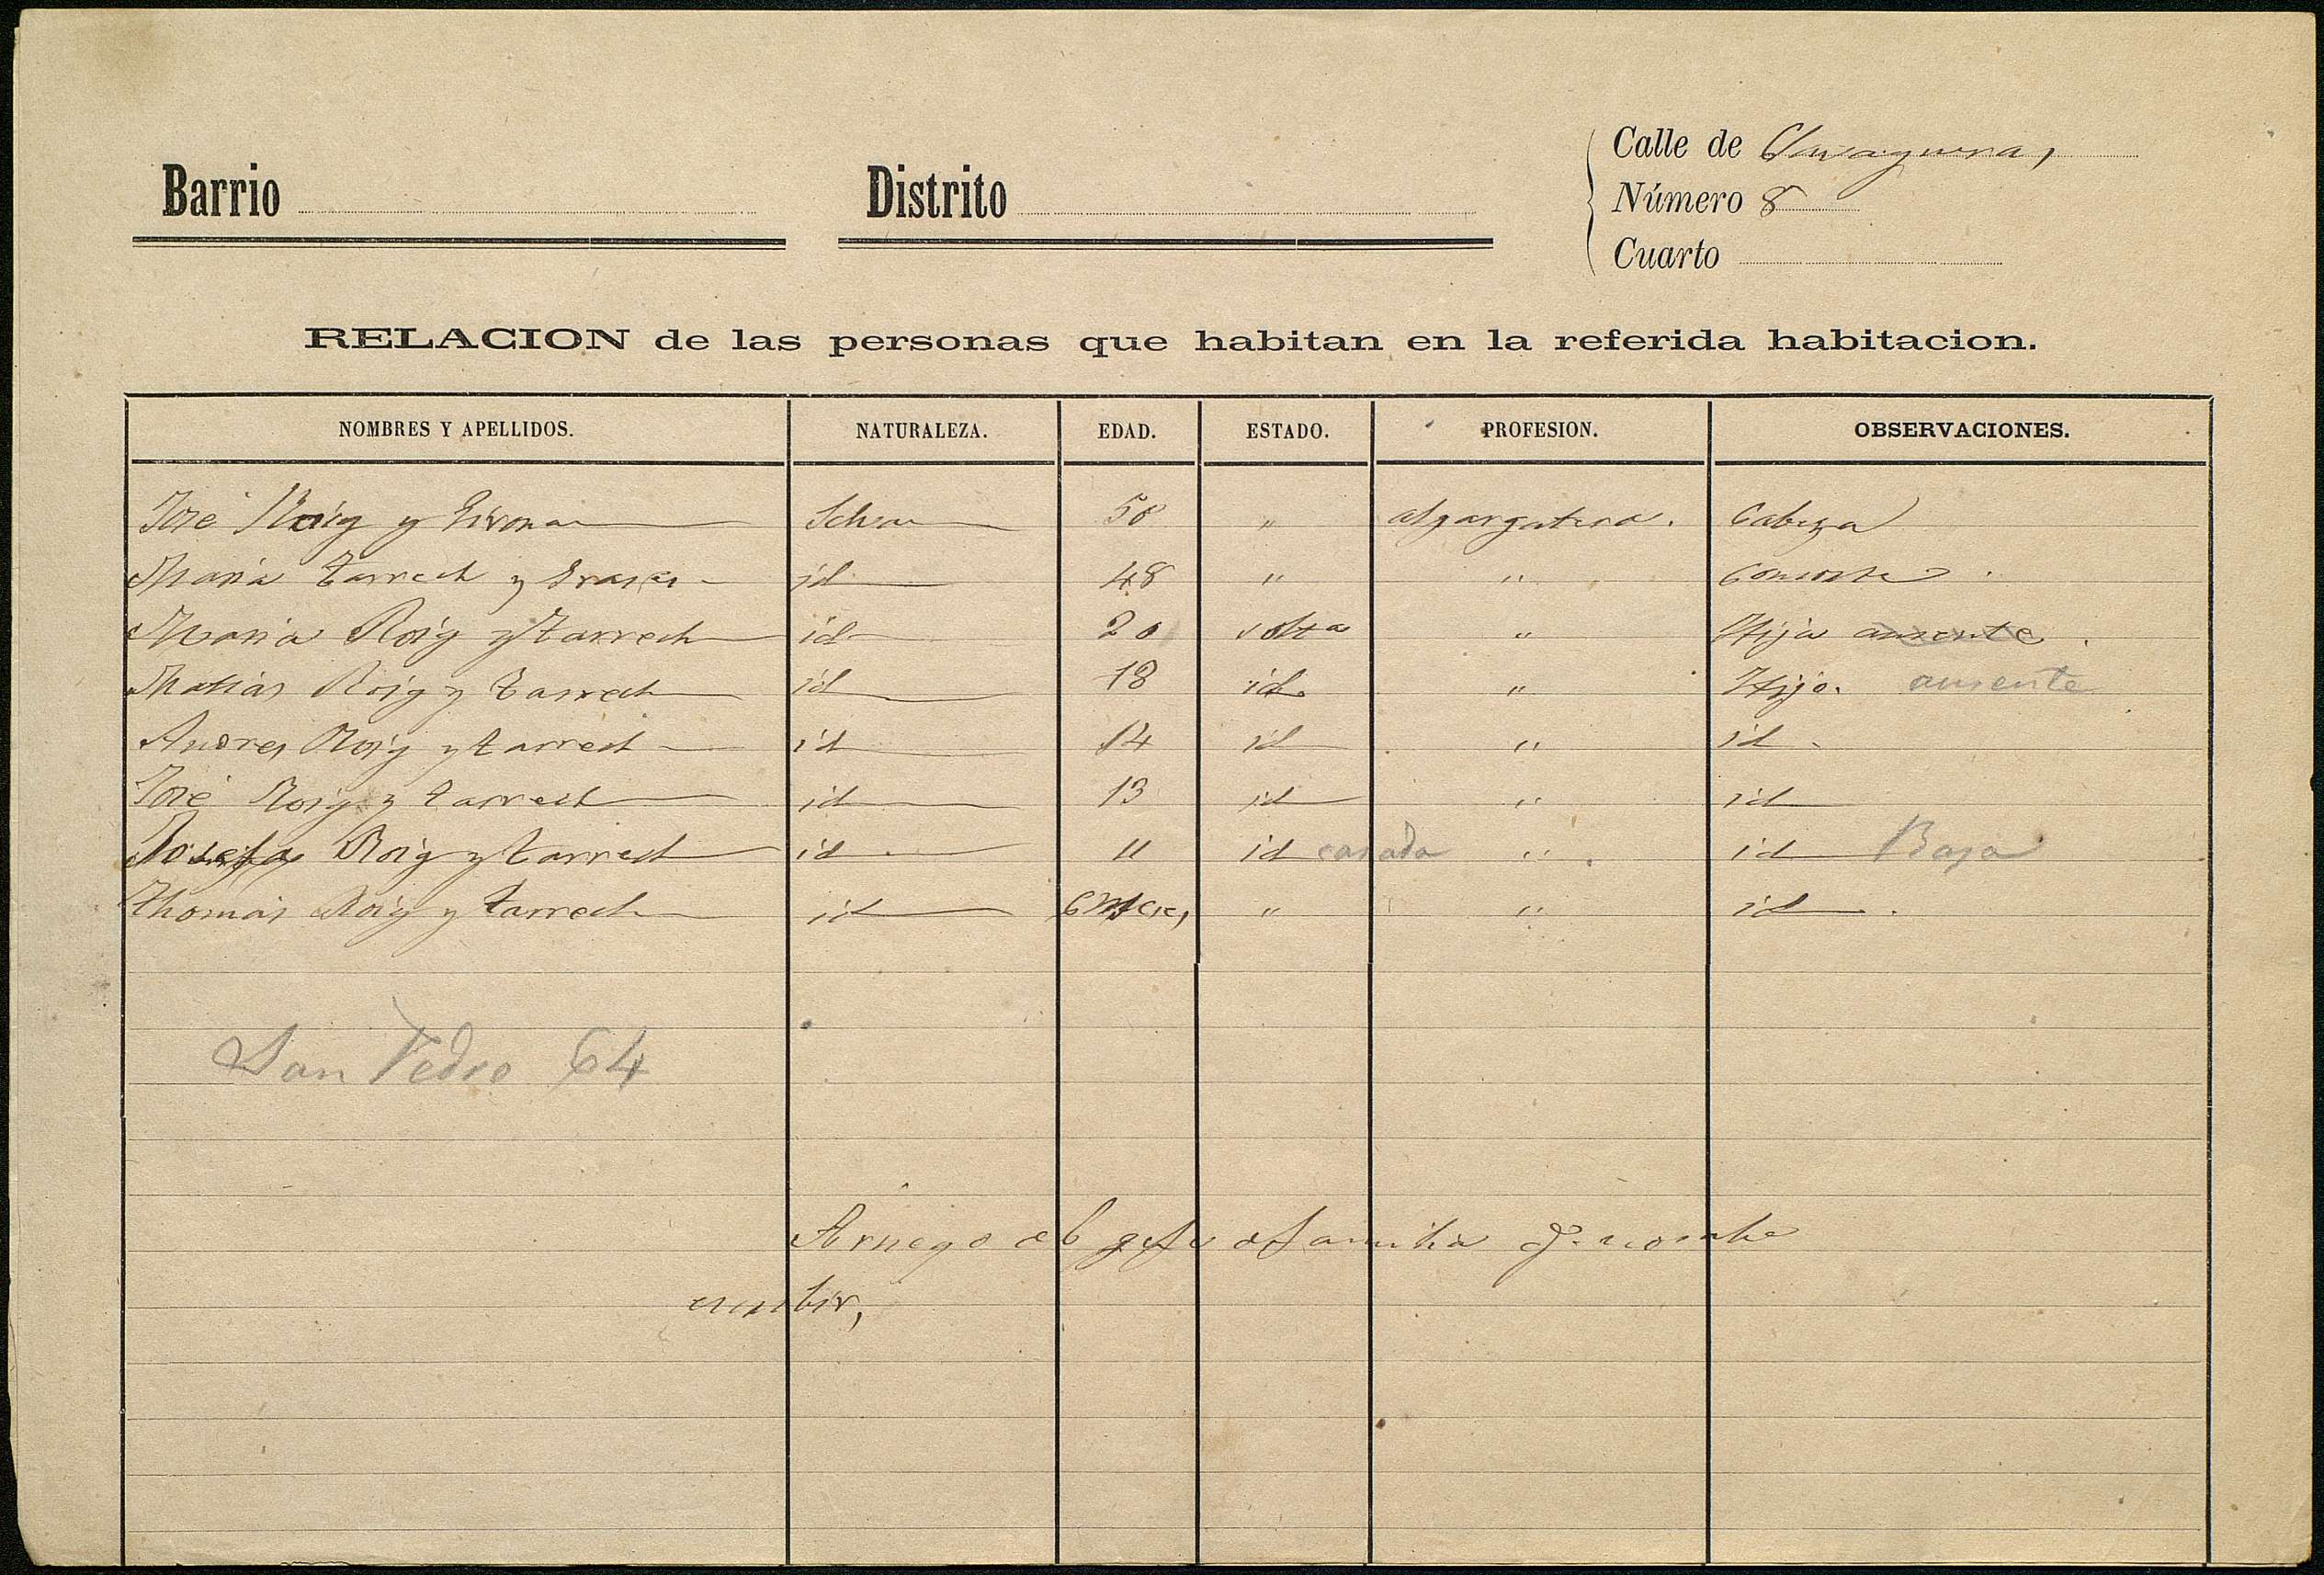 Calle de Clavaguera,
Barrio Distrito Número 8
Cuarto
RELACION de las personas que habitan en la referida habitacion.
NOMBRES Y APELLIDOS. NATURALEZA. EDAD. ESTADO. PROFESION. OBSERVACIONES.
José Roig y Girona Selva 50 " alpargatero. Cabeza
Maria Tarrech y id 48 " " Consorte
Maria Roig y Tarrech id 20 solta " Hija ausente
Matias Roig y Tarrech id 18 id " Hijo. ausente
Andres Roig y tarrech id 14 id " id
José Roig y tarrech id 13 id " id
Josefa Roig y tarrech id 11 id casada " id Baja
Thomás Roig y tarrech id 6 Meses, " " id
San Pedro 64
A ruego del gefe de familia q. no sabe
escribir,